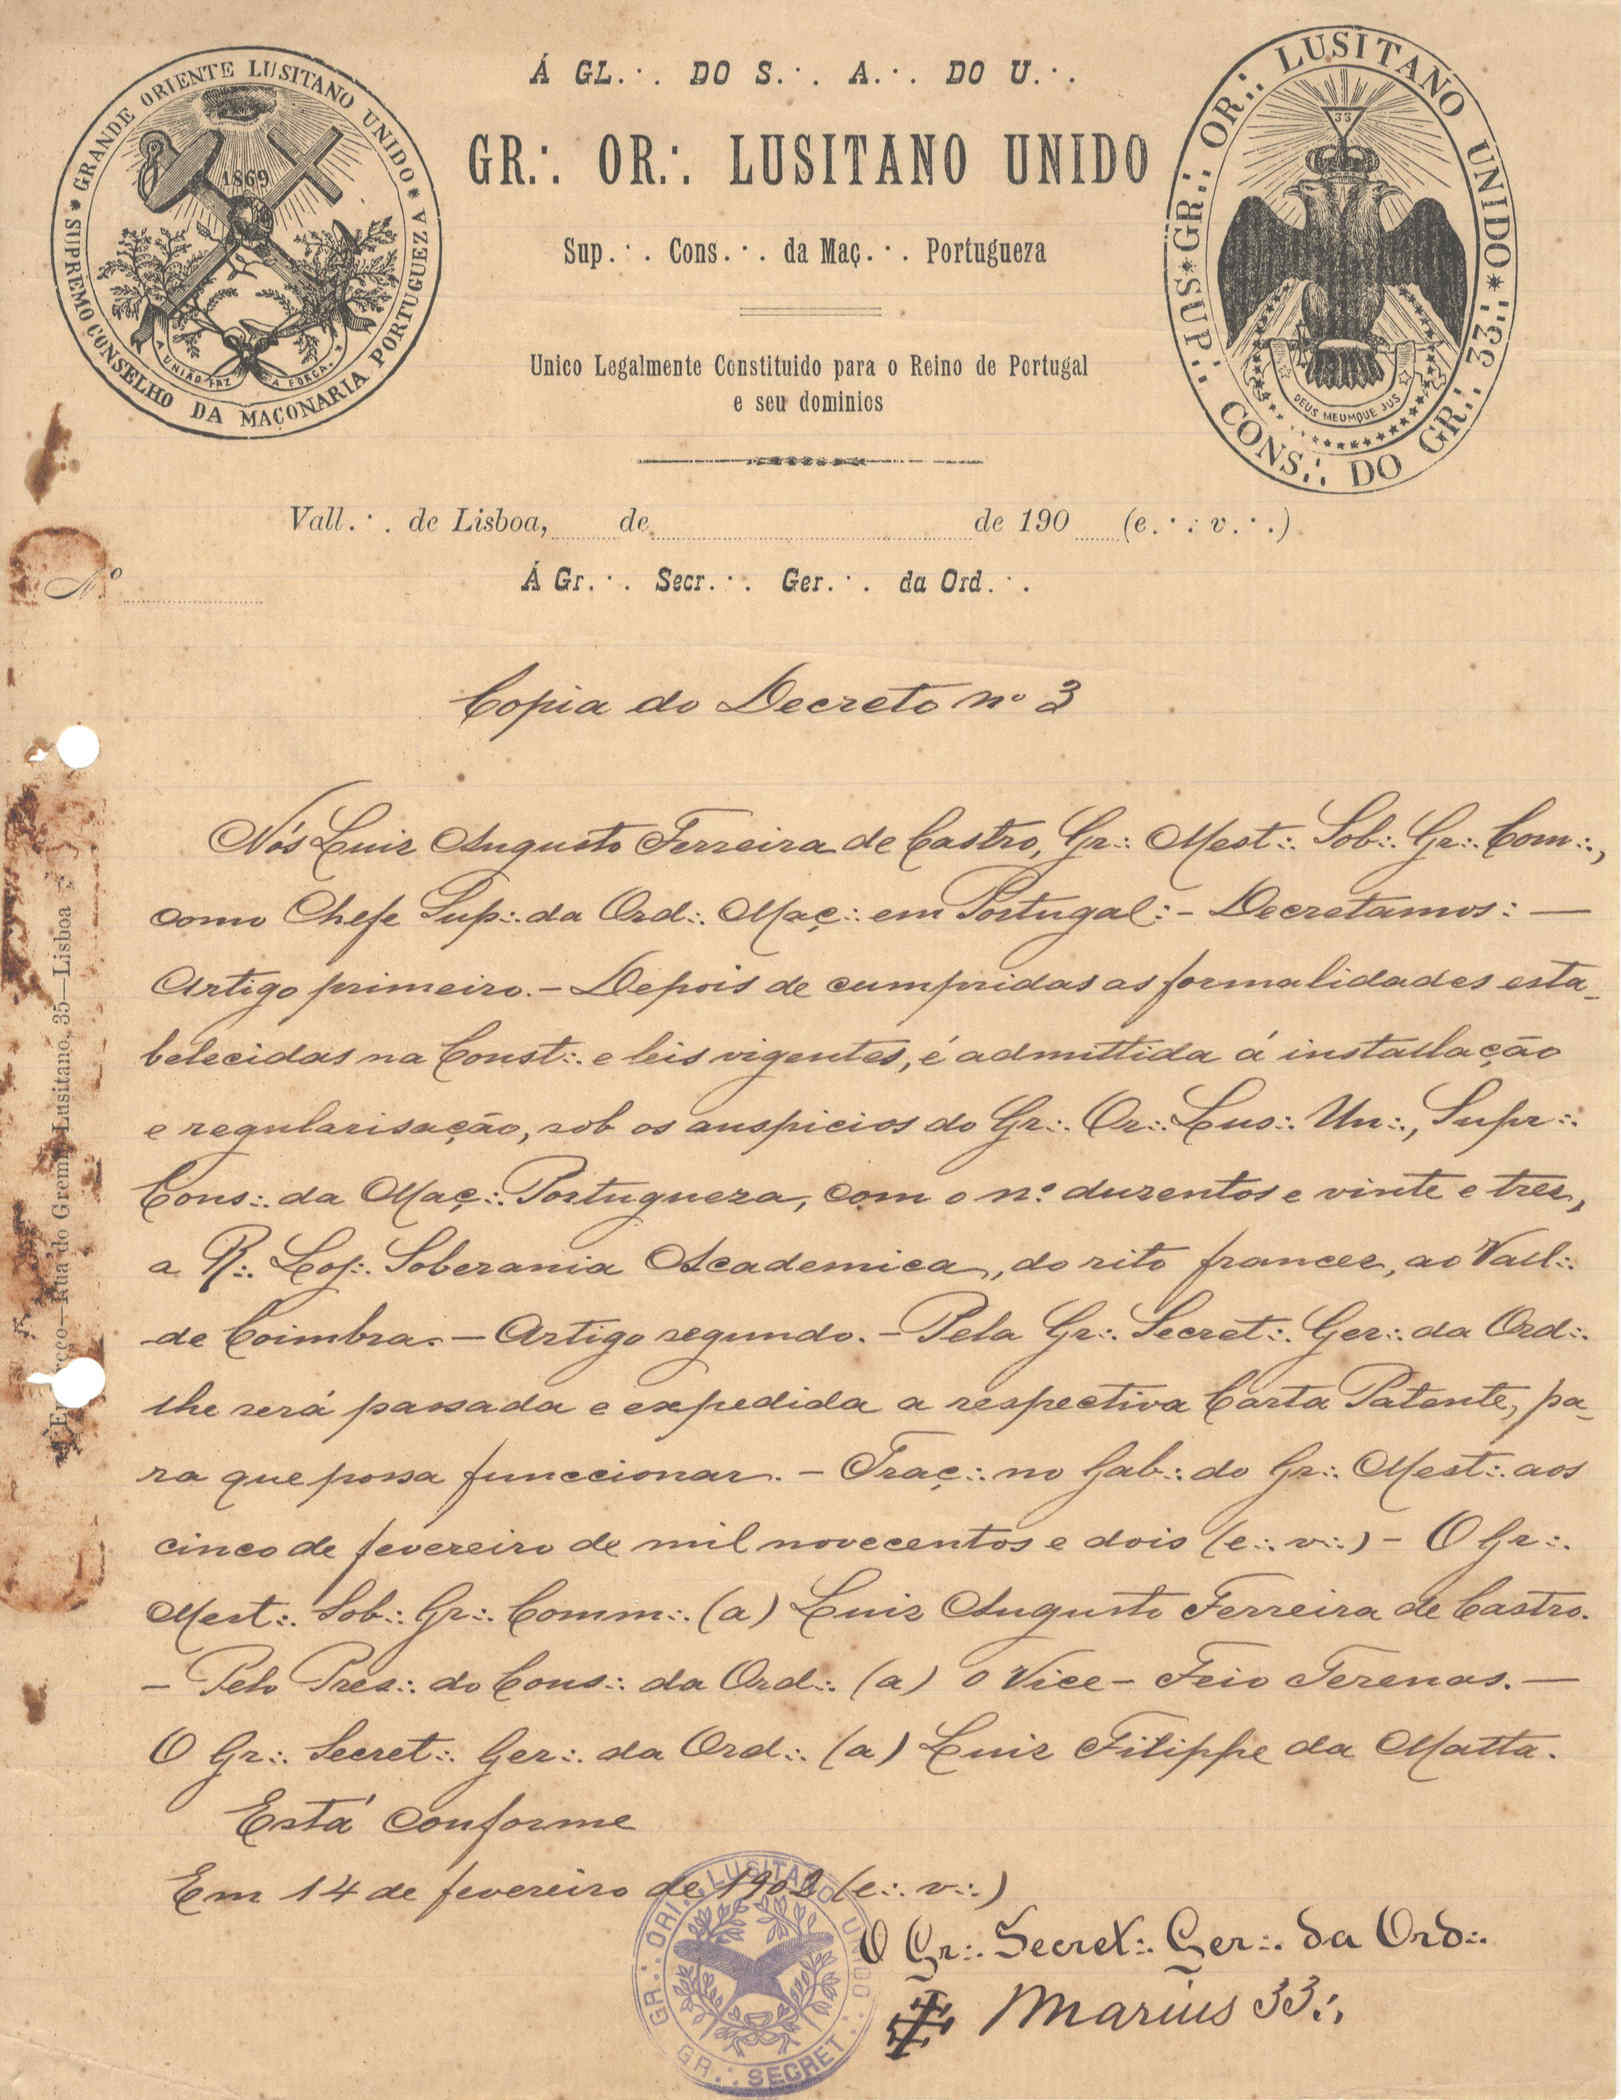 GRANDE ORIENTE LUSITANO UNIDO
SUPREMO CONSELHO DA MAÇONARIA PORTUGUEZA
1869
A UNIÃO FAZ A FORÇA
Á GL.·. DO S.·. A.·. DO U.·.
GR.·. OR.·. LUSITANO UNIDO
Sup.·. Cons.·. da Maç.·. Portugueza
Unico Legalmente Constituido para o Reino de Portugal
e seu dominios
GR.·. OR.·. LUSITANO UNIDO
SUP.·. CONS.·. DO GR.·. 33.·.
33
DEUS MEUMQUE JUS
Vall.·. de Lisboa, de de 190 (e.·. v.·.)
N.º
Á Gr.·. Secr.·. Ger.·. da Ord.·.
Copia do Decreto nº 3
Nós Luiz Augusto Ferreira de Castro, Gr.·. Mest.·. Sob.·. Gr.·. Com.·.,
como Chefe Sup.·. da Ord.·. Maç.·. em Portugal: - Decretamos: —
Artigo primeiro. - Depois de cumpridas as formalidades esta-
belecidas na Const.·. e leis vigentes, é admittida á installação
e regularisação, sob os auspicios do Gr.·. Or.·. Lus.·. Un.·., Supr.·.
Cons.·. da Maç.·. Portugueza, com o nº duzentos e vinte e tres,
a R.·. Loj.·. Soberania Academica, do rito francez, ao Vall.·.
de Coimbra. — Artigo segundo. - Pela Gr.·. Secret.·. Ger.·. da Ord.·.
lhe será passada e expedida a respectiva Carta Patente, pa-
ra que possa funccionar. - Traç.·. no Gab.·. do Gr.·. Mest.·. aos
cinco de fevereiro de mil novecentos e dois (e.·. v.·.) - O Gr.·.
Mest.·. Sob.·. Gr.·. Comm.·. (a) Luiz Augusto Ferreira de Castro.
- Pelo Pres.·. do Cons.·. da Ord.·. (a) O Vice - Feio Terenas. —
O Gr.·. Secret.·. Ger.·. da Ord.·. (a) Luiz Filippe da Matta.
Está conforme
Em 14 de fevereiro de 1902 (e.·. v.·.)
O Gr.·. Secret.·. Ger.·. da Ord.·.
Marius 33.·.
GR.·. ORI.·. LUSITANO UNIDO
GR.·. SECRET.·.
Rua do Gremio Lusitano, 35—Lisboa